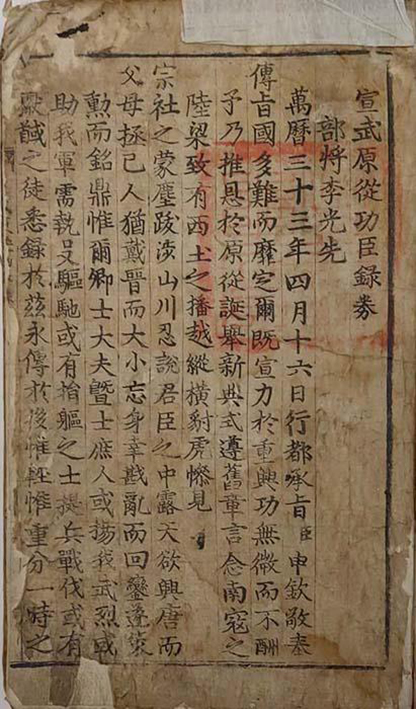 宣武原從功臣錄券
部將李光先
萬曆三十三年四月十六日行都承旨臣申欽敬奉
傳旨國多難而靡定爾旣宣力於重興功無微而不酬
予乃推恩於原從誕擧新典式遵舊章言念南寇之
陸梁致有西土之播越縱橫豺虎慘見
宗社之蒙塵跋涉山川忍說君臣之中露天欲興唐而
父母拯己人猶戴晉而大小忘身幸戡亂而回鑾遂策
勳而銘鼎惟爾卿士大夫曁士庶人或揚我武烈或
助我軍需執殳驅馳或有捨軀之士提兵戰伐或有
獻馘之徒悉錄於玆永傳於後惟輕惟重分一時之